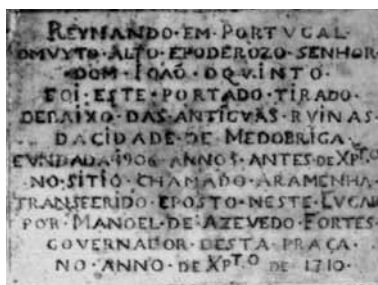 REYNANDO·EM·PORTVGAL
OMVYTO·ALTO·EPODEROZO·SENHOR
·DOM·IOAÕ·DQVINTO·
FOI·ESTE·PORTADO·TIRADO·
DEBAIXO·DAS·ANTIGVAS·RVINAS
DACIDADE·DE·MEDOBRIGA·
FVNDADA·1906·ANNOS·ANTES·DE XPᵀᴼ
NO·SITIO·CHAMADO·ARAMENHA·
TRANSFERIDO·EPOSTO·NESTE·LVGAR
POR·MANOEL·DE·AZEVEDO·FORTES·
GOVERNADOR·DESTA·PRAÇA·
NO·ANNO·DE·XPᵀᴼ·DE·1710·